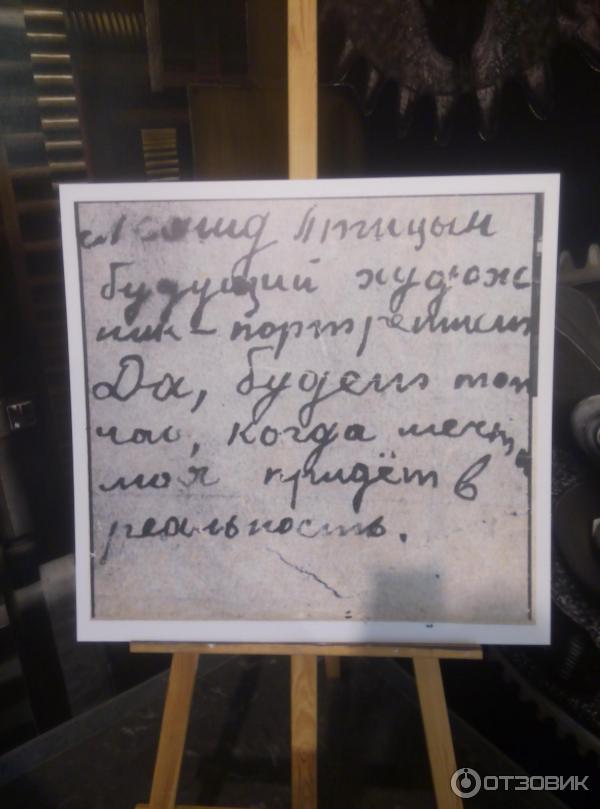 Леонид Птицын
будущий художс
ник-портретист
Да, будет тот
час, когда мечта
моя придёт в
реальность.
ОТЗОВИК